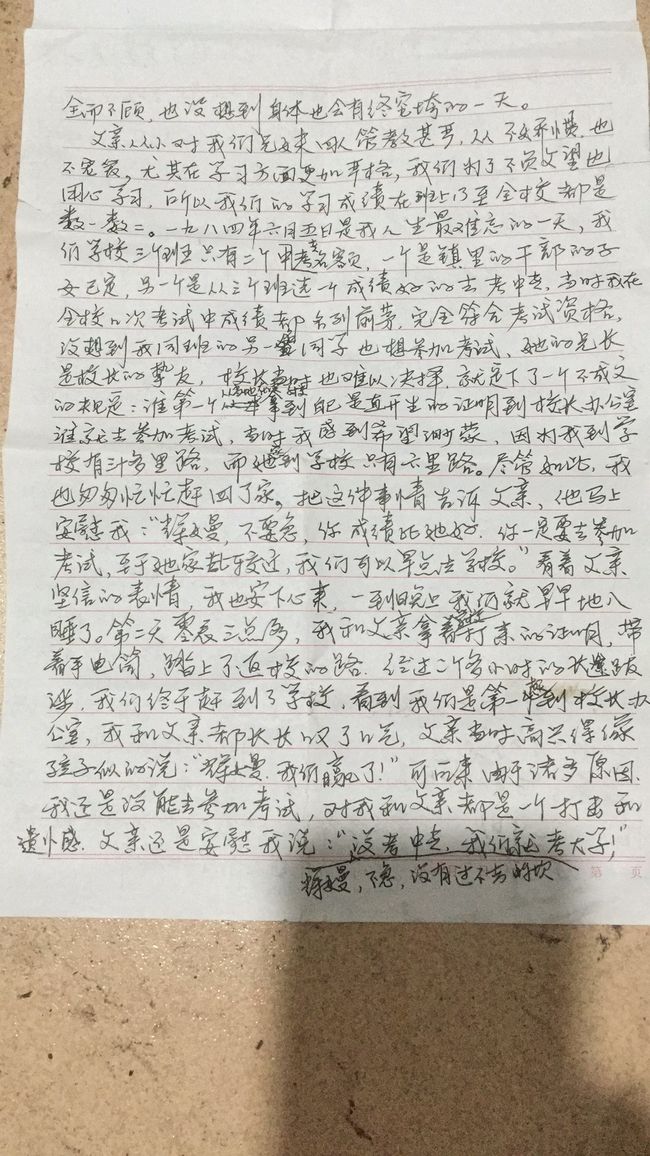 全而不顾，也没想到身体也会有终究垮的一天。
父亲从小对我们兄妹四人管教甚严，从不娇惯，也
不宽容。尤其在学习方面更加严格，我们为了不负父望也
用心学习，所以我们的学习成绩在班上乃至全校都是
数一数二。一九八四年六月五日是我人生最难忘的一天，我
们学校三个班只有二个中考名额，一个是镇里的干部的子
女已定，另一个是从三个班选一个成绩好的去考中专，当时我在
全校几次考试中成绩都名列前茅，完全符合考试资格，
没想到我同班的另一同学也想参加考试，她的兄长
是校长的挚友，校长当时也难以决择，就定下了一个不成文
的规定：谁第一个拿到自己是直开生的证明到校长办公室
谁就去参加考试，当时我感到希望渺茫，因为我到学
校有三十多里路，而她到学校只有六里路。尽管如此，我
也匆匆忙忙赶回了家。把这件事情告诉父亲，他马上
安慰我：“辉曼，不要急，你成绩比她好，你一定要去参加
考试，至于她家赴校近，我们可以早点去学校。”看着父亲
坚信的表情，我也安下心来，一到晚上我们就早早地入
睡了。第二天零晨三点多，我和父亲拿着打来的证明，带
着手电筒，踏上了返校的路，经过二个多小时的长途跋
涉，我们终于赶到了学校，看到我们是第一个到校长办
公室，我和父亲都长长叹了口气，父亲当时高兴得像
孩子似的说：“辉曼，我们赢了！”可后来由于诸多原因，
我还是没能去参加考试，对我和父亲都是一个打击和
遗憾感，父亲还是安慰我说：“没考中专，我们就考大学！”
辉曼，不急，没有过不去的坎
第 页